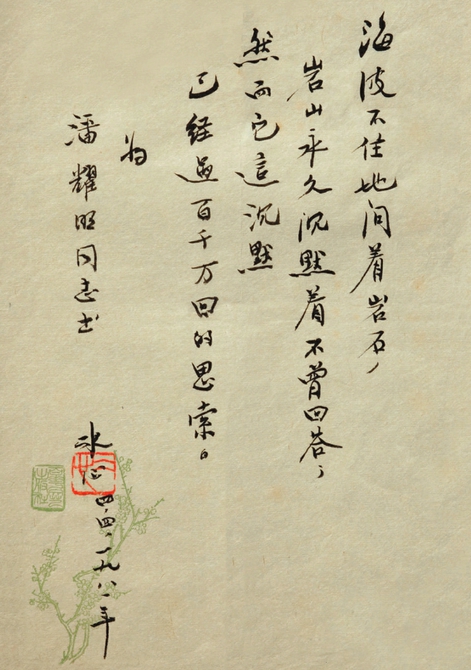 海波不住地问着岩石，
岩山永久沉默着不曾回答；
然而它这沉默
已经过百千万回的思索。
为
潘耀明同志书
冰心 四，四，一九八一年